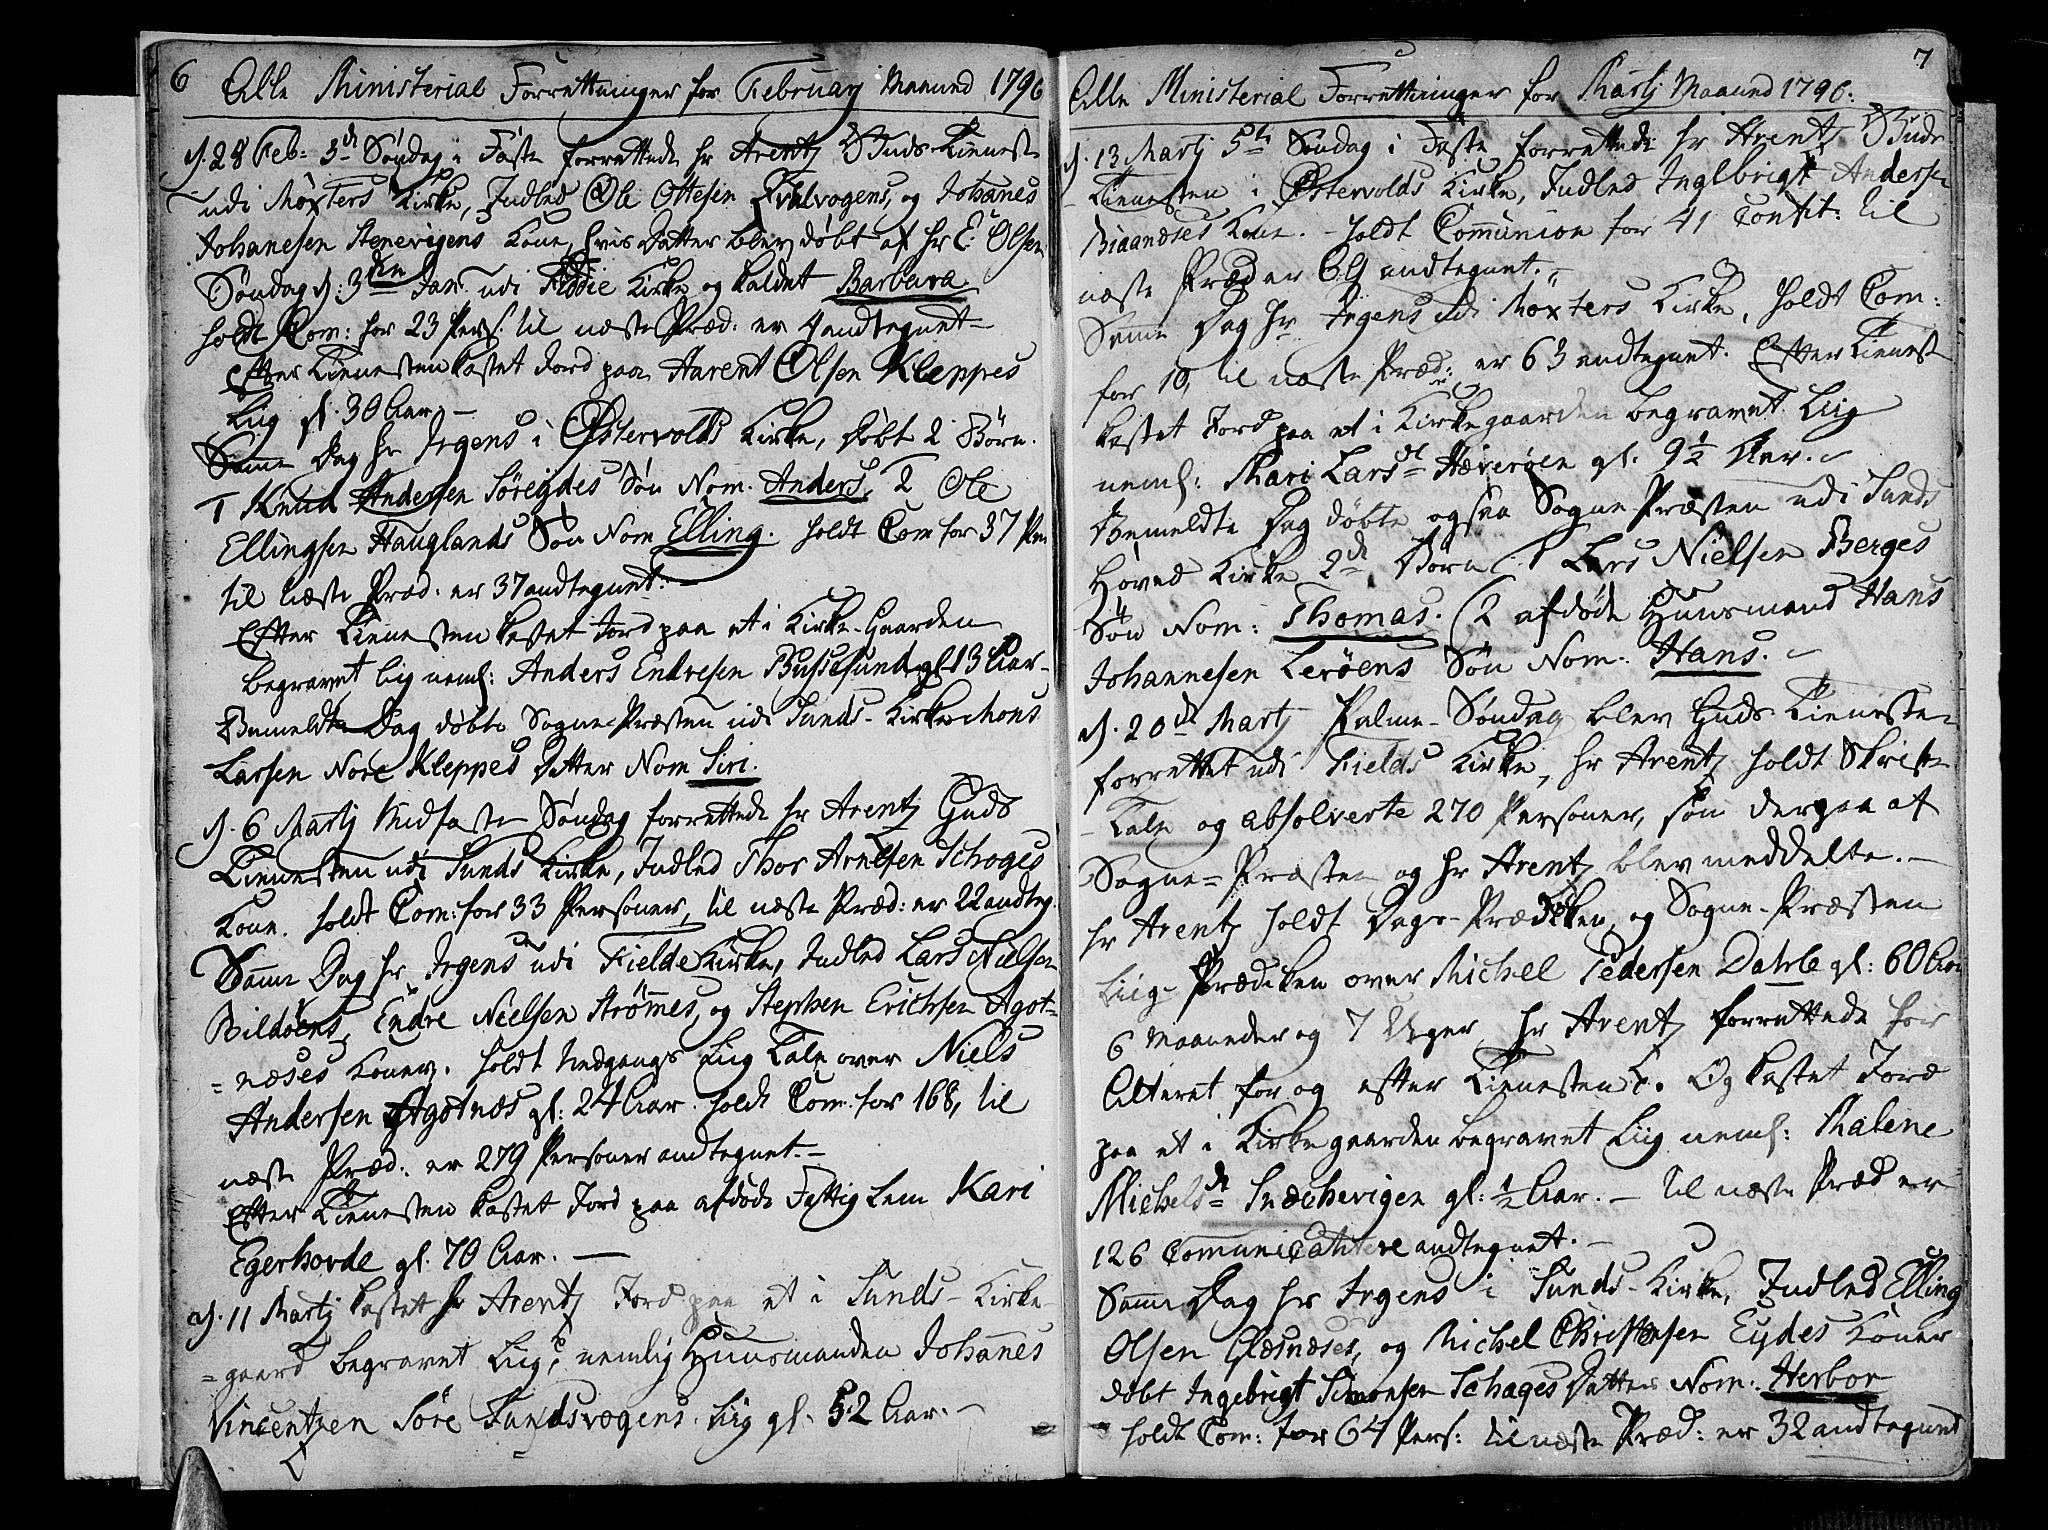 6 Alle Ministerial Forrettninger for Februarj Maaned 1796
d. 28 Feb: 3de Søndag i Faste forrettede hr Arentz Guds Tieneste
udi Møxters Kirke, Indled Ole Ottesen Hvalvogens, og Johanes
Johanesen Stenevigens Kone, hvis Datter blev døbt af hr E: Olsen
Søndag d: 3den Jan. udi Kirke og kaldet Barbara
holdt Com: for 23 Pers. til næste Præd: er 4 andtegnet
Efter Tienesten kastet Jord paa Aarent Olsen Kleppes
Liig gl. 30 Aar
Samme Dag hr Irgens i Østervolds Kirke, døbt 2 Børn.
1 Knud Andersen Søreydes Søn Nom. Anders, 2 Ole
Ellingsen Hauglands Søn Nom Elling. holdt Com for 37 Per
til næste Præd: er 37 andtegnet:
Efter Tienesten kastet Jord paa et i Kirke-Gaarden
begravet Lig neml: Anders Endresen Bussesund gl 13 Aar
Bemeldte Dag døbte Sogne-Præsten udi Sunds-Kirke Mons
Larsen Nore Kleppes Datter Nom Siri.
d. 6 Martj Midfaste Søndag forrettede hr Arentz Guds
Tienesten udi Sunds Kirke, Indled Thor Arnesen Schoges
Kone. holdt Com: for 33 Personer, til næste Præd: er 22 andteg.
Samme Dag hr Irgens udi Fielde Kirke, Indled Lars Nielsen
Bildøens, Endre Nielsen Strømmes, og Stephen Erichsen Agot-
=næses Koner. holdt Nedgangs Liig Tale over Niels
Andersen Agotnæs gl: 24 Aar. holdt Com. for 168, til
næste Præd: er 279 Personer andtegnet.
Efter Tienesten kastet Jord paa afdøde Fattig Lem Kari
Egerhovde gl. 70 Aar.
d. 11 Martj kastet hr Arentz Jord paa et i Sunds-Kirke-
=gaard begravet Liig, nemlig Huusmanden Johanes
Vincentzen Søre Sundsvogens Liig gl. 52 Aar.
7
Alle Ministerial Forrettninger for Martj Maaned 1796.
d. 13 Martj 5te Søndag i Faste forrettede hr Arentz Guds
Tienesten i Østervolds Kirke, Indled Ingelbrigt Andersen
Biaandses Kone. holdt Communion for 41 Confit: til
næste Præd er 69 andtegnet.
Samme Dag hr Irgens udi Møxters Kirke, holdt Com:
for 10, til næste Præd: er 63 andtegnet. Efter Tienesten
kastet Jord paa et i Kirkegaarden begravet Liig
neml: Mari Larsdt Hæverøen gl. 9½ Aar.
Bemeldte Dag døbte ogsaa Sogne-Præsten udi Sunds
Hoved Kirke 2de Børn (1 Lars Nielsen Berges
Søn Nom: Thomas. (2 afdøde Huusmand Hans
Johannesen Lerøens Søn Nom: Hans.
d. 20de Martj Palme-Søndag blev Guds Tieneste
forrettet udi Fields Kirke, hr Arentz holdt Skrifte
Tale og absolverte 270 Personer, som derpaa af
Sogne-Præsten og hr Arentz blev meddelte.
hr Arentz holdt Dags-Prædiken og Sogne-Præsten
Liig-Prædiken over Michel Pedersen Dahle gl: 60 Aar
6 Maaneder og 7 Uger, hr Arentz forrettede for
Alteret for og efter Tienesten. Og kastet Jord
paa et i Kirkegaarden begravet Liig neml: Malene
Michelsdt Snechevigen gl: ½ Aar. til næste Præd er
126 Comunicantere andtegnet.
Samme Dag hr Irgens i Sunds-Kirke, Indled Elling
Olsen Glæsnæses, og Michel Christensen Eydes Koner
døbt Ingebrigt Simonsen Schages Datter Nom: Herbor
holdt Com: for 64 Pers: til næste Præd: er 32 andtegnet